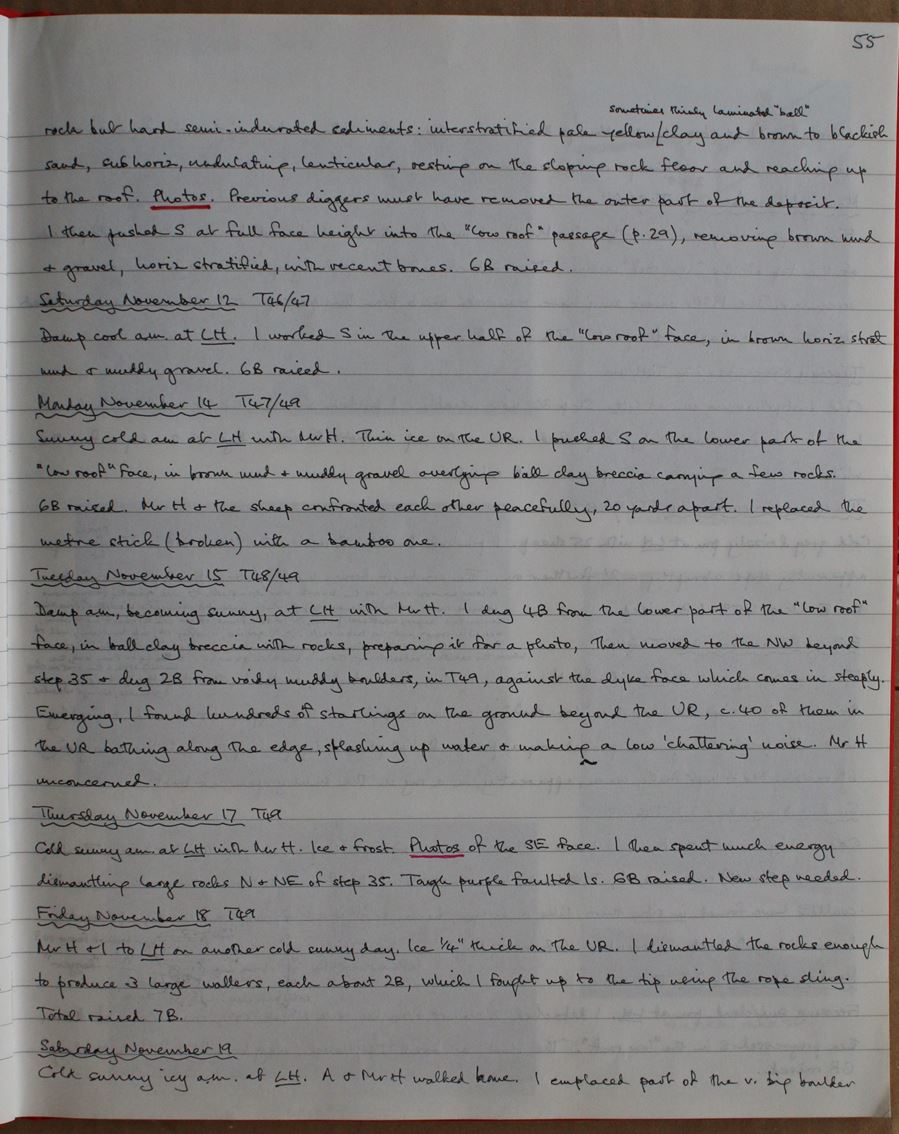 55
sometimes thinly laminated "ball"
rock but hard semi-indurated sediments: interstratified pale yellow/clay and brown to blackish
sand, subhoriz, undulating, lenticular, resting on the sloping rock floor and reaching up
to the roof. Photos. Previous diggers must have removed the outer part of the deposit.
I then pushed S at full face height into the "low roof" passage (p.29), removing brown mud
+ gravel, horiz stratified, with recent bones. 6B raised.
Saturday November 12 T46/47
Damp cool am at LH. I worked S in the upper half of the "low roof" face, in brown horiz strat
mud + muddy gravel. 6B raised.
Monday November 14 T47/49
Sunny cold am at LH with Mr H. Thin ice on the UR. I pushed S on the lower part of the
"low roof" face, in brown mud + muddy gravel overlying ball clay breccia carrying a few rocks.
6B raised. Mr H + the sheep confronted each other peacefully, 20 yards apart. I replaced the
metre stick (broken) with a bamboo one.
Tuesday November 15 T48/49
Damp am, becoming sunny, at LH with Mr H. I dug 4B from the lower part of the "low roof"
face, in ball clay breccia with rocks, preparing it for a photo, then moved to the NW beyond
step 35 + dug 2B from voidy muddy boulders, in T49, against the dyke face which comes in steeply.
Emerging, I found hundreds of starlings on the ground beyond the UR, c.40 of them in
the UR bathing along the edge, splashing up water + making a low 'chattering' noise. Mr H
unconcerned.
Thursday November 17 T49
Cold sunny am at LH with Mr H. Ice + frost. Photos of the SE face. I then spent much energy
dismantling large rocks N + NE of step 35. Tough purple faulted ls. 6B raised. New step needed.
Friday November 18 T49
Mr H + I to LH on another cold sunny day. Ice 1/4" thick on the UR. I dismantled the rocks enough
to produce 3 large wallers, each about 2B, which I fought up to the tip using the rope sling.
Total raised 7B.
Saturday November 19
Cold sunny icy a.m. at LH. A + Mr H walked home. I emplaced part of the v. big boulder